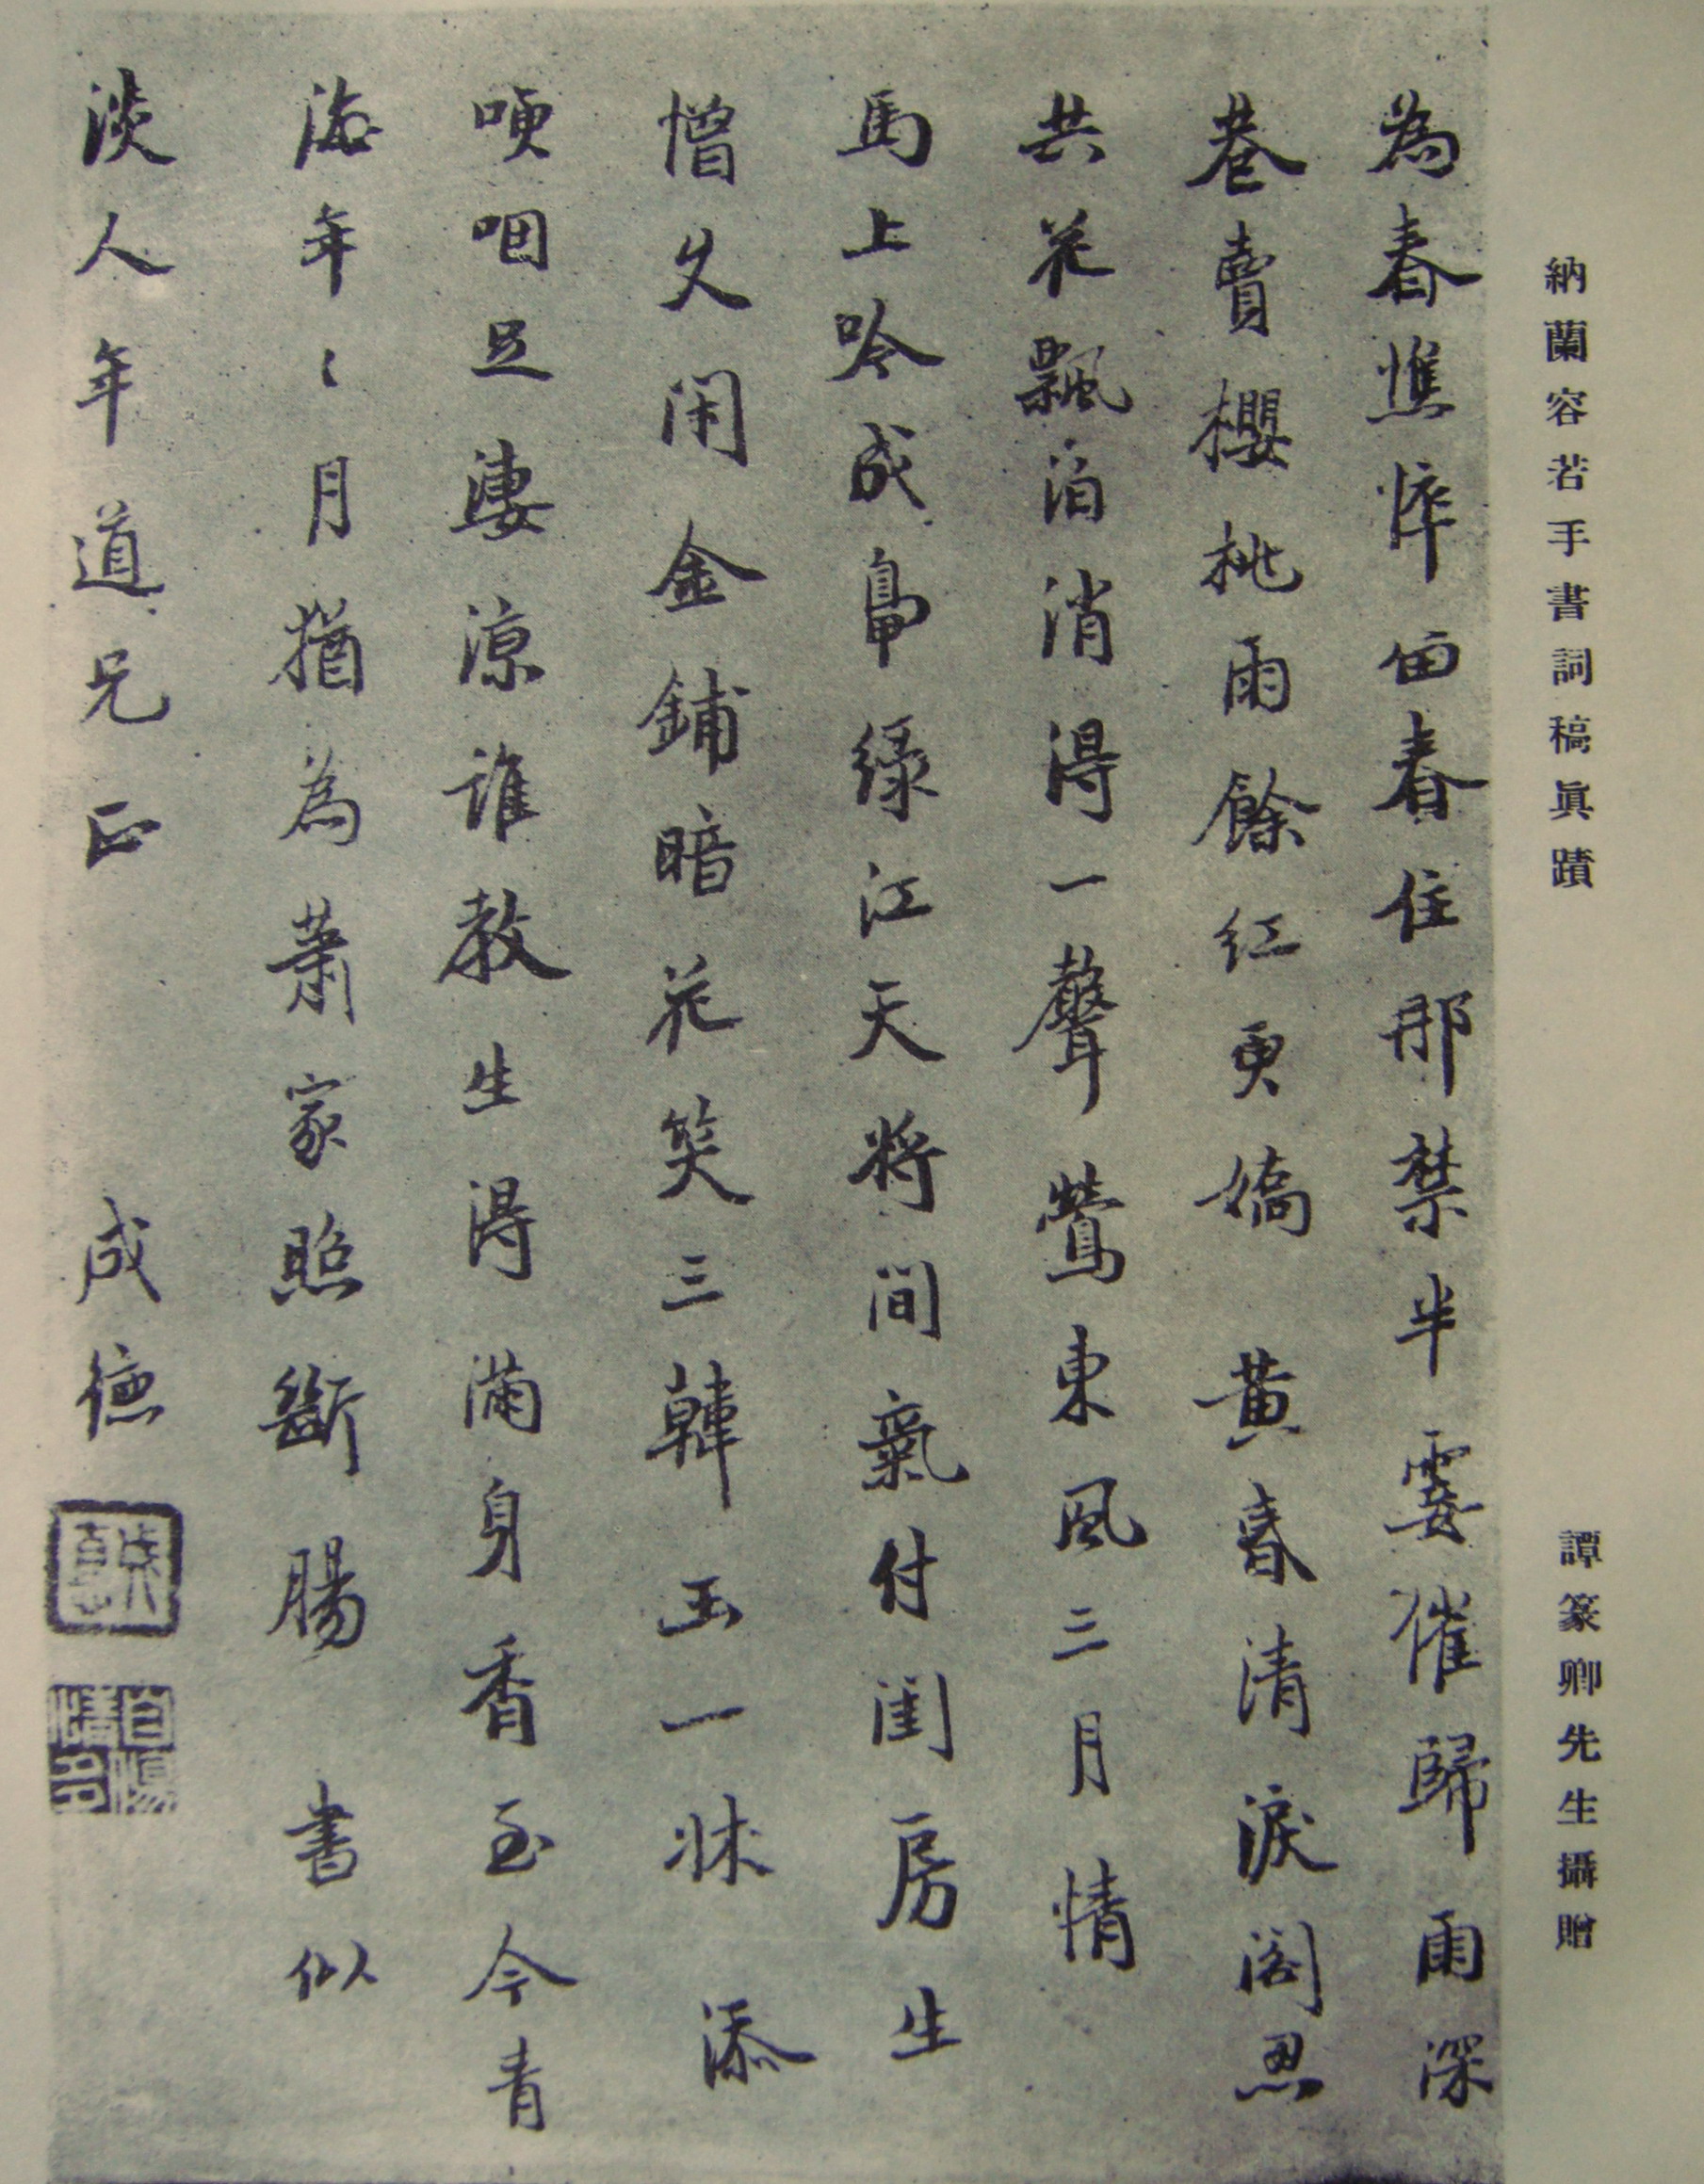 納蘭容若手書詞稿眞蹟
譚篆卿先生攝贈
為春憔悴留春住那禁半霎催歸雨深
巷賣櫻桃雨餘紅更嬌 黃昏清淚閣忍
共花飄泊消得一聲鶯東風三月情
馬上吟成鳧綠江天將間氣付閨房生
憎久閉金鋪暗花笑三韓玉一牀 添
哽咽足淒涼誰教生得滿身香至今青
海年〻月猶為蕭家照斷腸 書似
淡人年道兄正 成德
成德
自傷情多